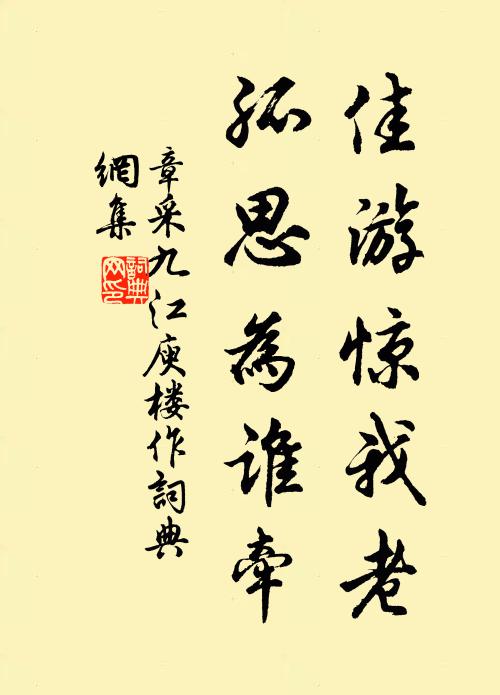 佳游惊我老
孤思為谁牵
章采九江庾楼作詞典
網集
詞典
网印